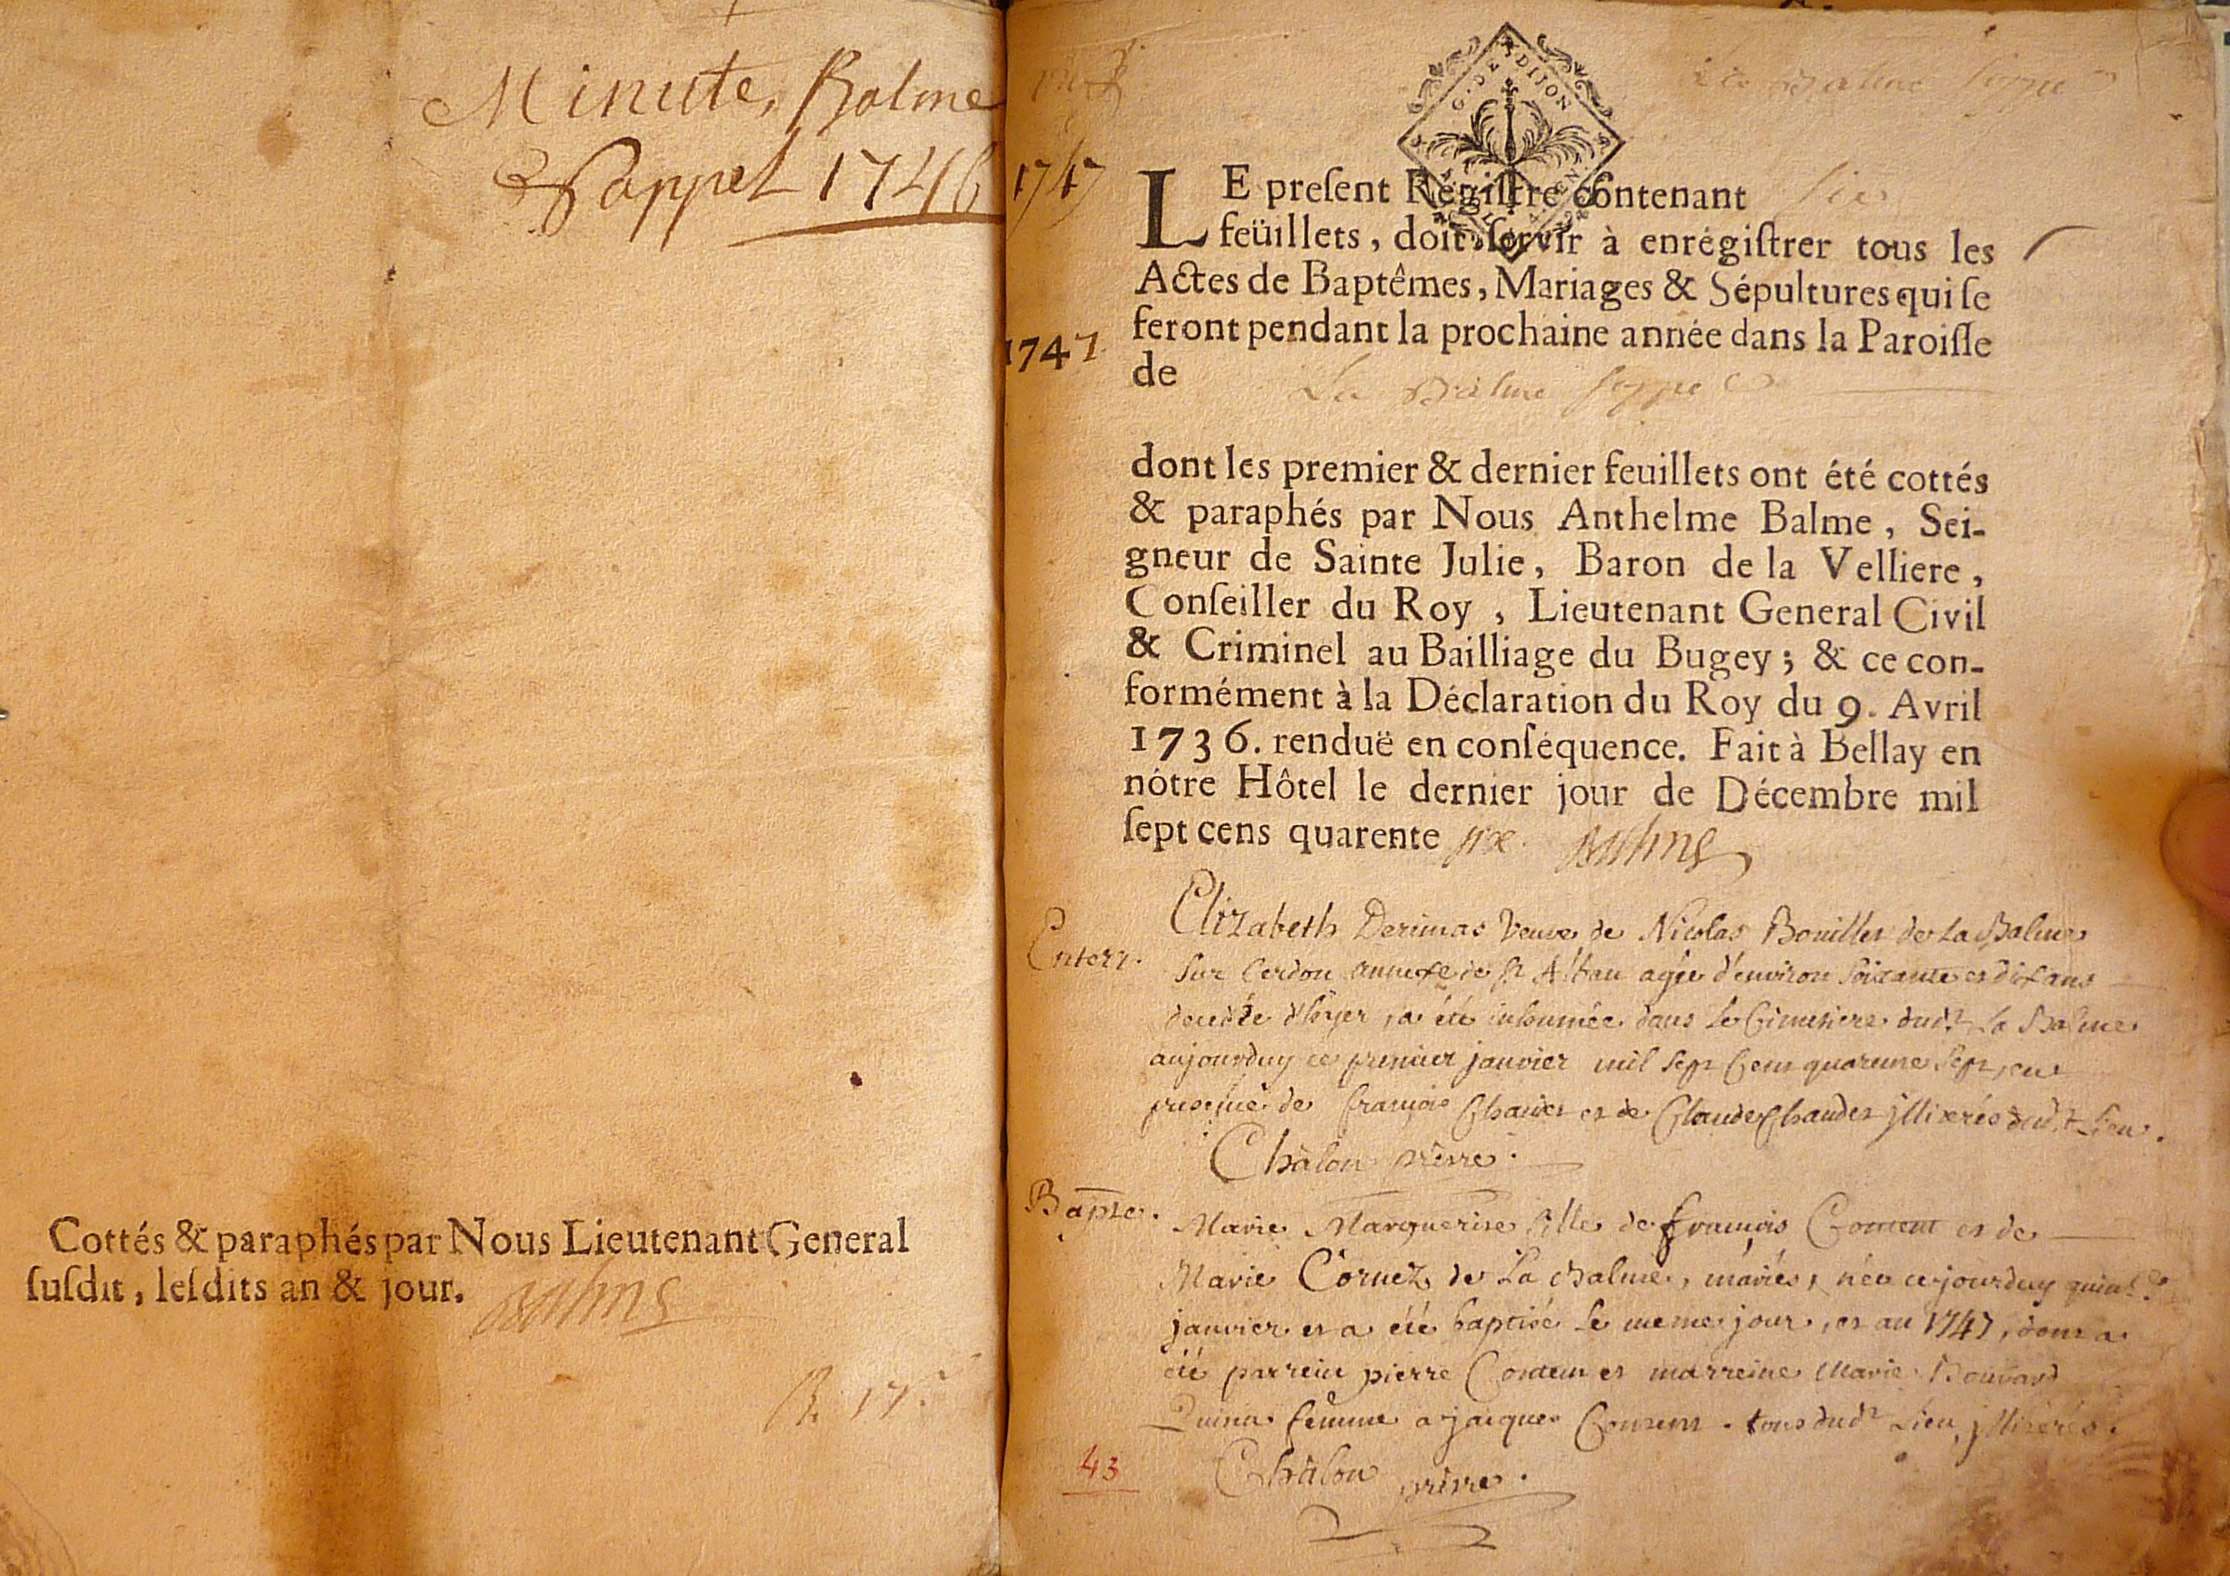 Minute, Balme
& Sappel 1746
Cottés & paraphés par Nous Lieutenant General
ſuſdit, leſdits an & jour.
Balme
1747
1747
G. DE DIJON
LE preſent Régiſtre contenant six
feüillets, doit ſervir à enrégiſtrer tous les
Actes de Baptêmes, Mariages & Sépultures qui ſe
feront pendant la prochaine année dans la Paroiſſe
de La Balme Seppel
dont les premier & dernier feuillets ont été cottés
& paraphés par Nous Anthelme Balme, Sei-
gneur de Sainte Julie, Baron de la Velliere,
Conſeiller du Roy, Lieutenant General Civil
& Criminel au Bailliage du Bugey; & ce con-
formément à la Déclaration du Roy du 9. Avril
1736. renduë en conſéquence. Fait à Bellay en
nôtre Hôtel le dernier jour de Décembre mil
ſept cens quarente six Balme
Enterr.
Elizabeth Derimas veuve de Nicolas Bouiller de La Balme
sur Cerdon annexe de St Alban agée d'environ soixante et dix ans
decedée d'hyer, a été inhumée dans le Cimetiere dudt La Balme
aujourduy ce premier janvier mil sept Cent quarente sept, en
presence de françois Chanier et de Claude Chauder jllitérés dudt Lieu.
Châlon prêtre.
Bapte.
Marie Marguerite fille de françois Content et de
Marie Cornez de La Balme, mariés, née ce jourduy quinze
janvier et a été baptisé le meme jour, et an 1747, dont a
été parrein pierre Content et marreine Marie Bouvard
femme a jacques Content. tous dudt Lieu jllitérés.
Châlon prêtre.
43